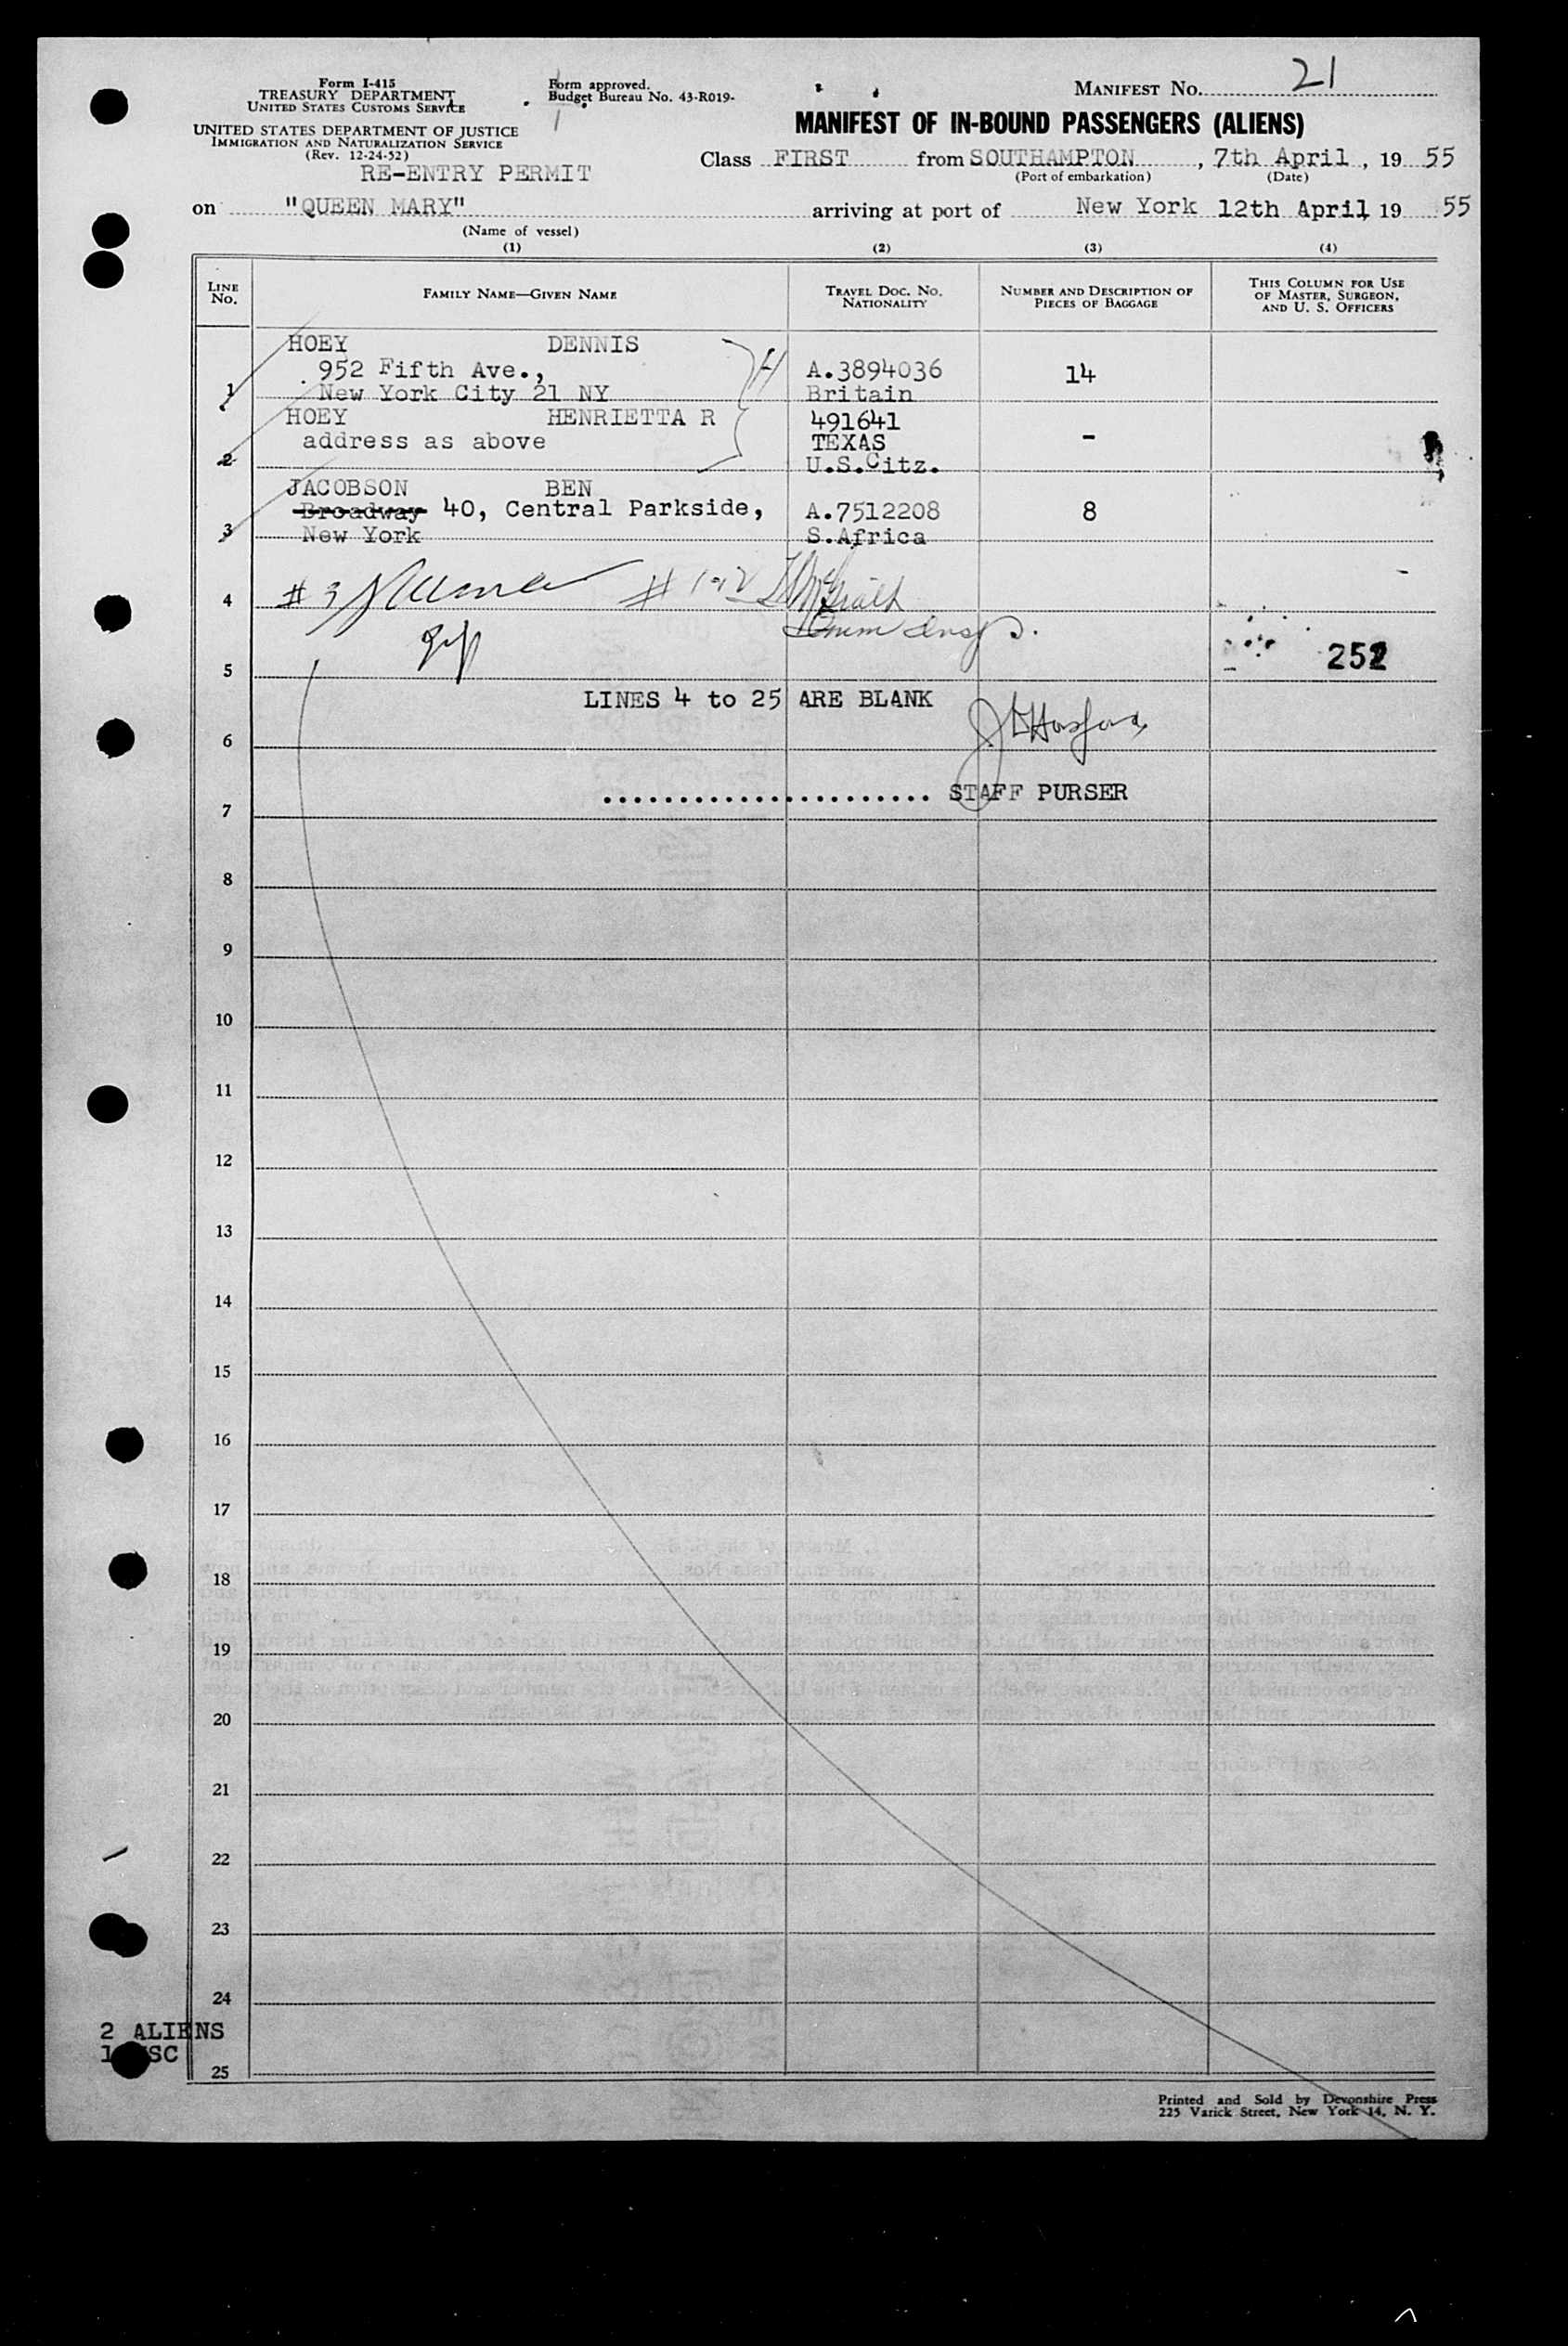 Form I-415
TREASURY DEPARTMENT
UNITED STATES CUSTOMS SERVICE
UNITED STATES DEPARTMENT OF JUSTICE
IMMIGRATION AND NATURALIZATION SERVICE
(Rev. 12-24-52)
RE-ENTRY PERMIT
Form approved.
Budget Bureau No. 43-R019-
MANIFEST NO. 21
MANIFEST OF IN-BOUND PASSENGERS (ALIENS)
Class FIRST from SOUTHAMPTON, 7th April, 19 55
(Port of embarkation) (Date)
on "QUEEN MARY" arriving at port of New York 12th April 19 55
(Name of vessel)
(1) (2) (3) (4)
LINE NO. FAMILY NAME—GIVEN NAME TRAVEL DOC. NO. NATIONALITY NUMBER AND DESCRIPTION OF PIECES OF BAGGAGE THIS COLUMN FOR USE OF MASTER, SURGEON, AND U. S. OFFICERS
HOEY DENNIS
952 Fifth Ave., A.3894036 14
1 New York City 21 NY Britain
HOEY HENRIETTA R 491641
address as above TEXAS -
2 U.S.Citz.
JACOBSON BEN
Broadway 40, Central Parkside, A.7512208 8
3 New York S.Africa
4 # 3 # 1-2
5 252
LINES 4 to 25 ARE BLANK
6
7 ...................... STAFF PURSER
8
9
10
11
12
13
14
15
16
17
18
19
20
21
22
23
24
2 ALIENS
1 USC
25
Printed and Sold by Devonshire Press
225 Varick Street, New York 14, N. Y.